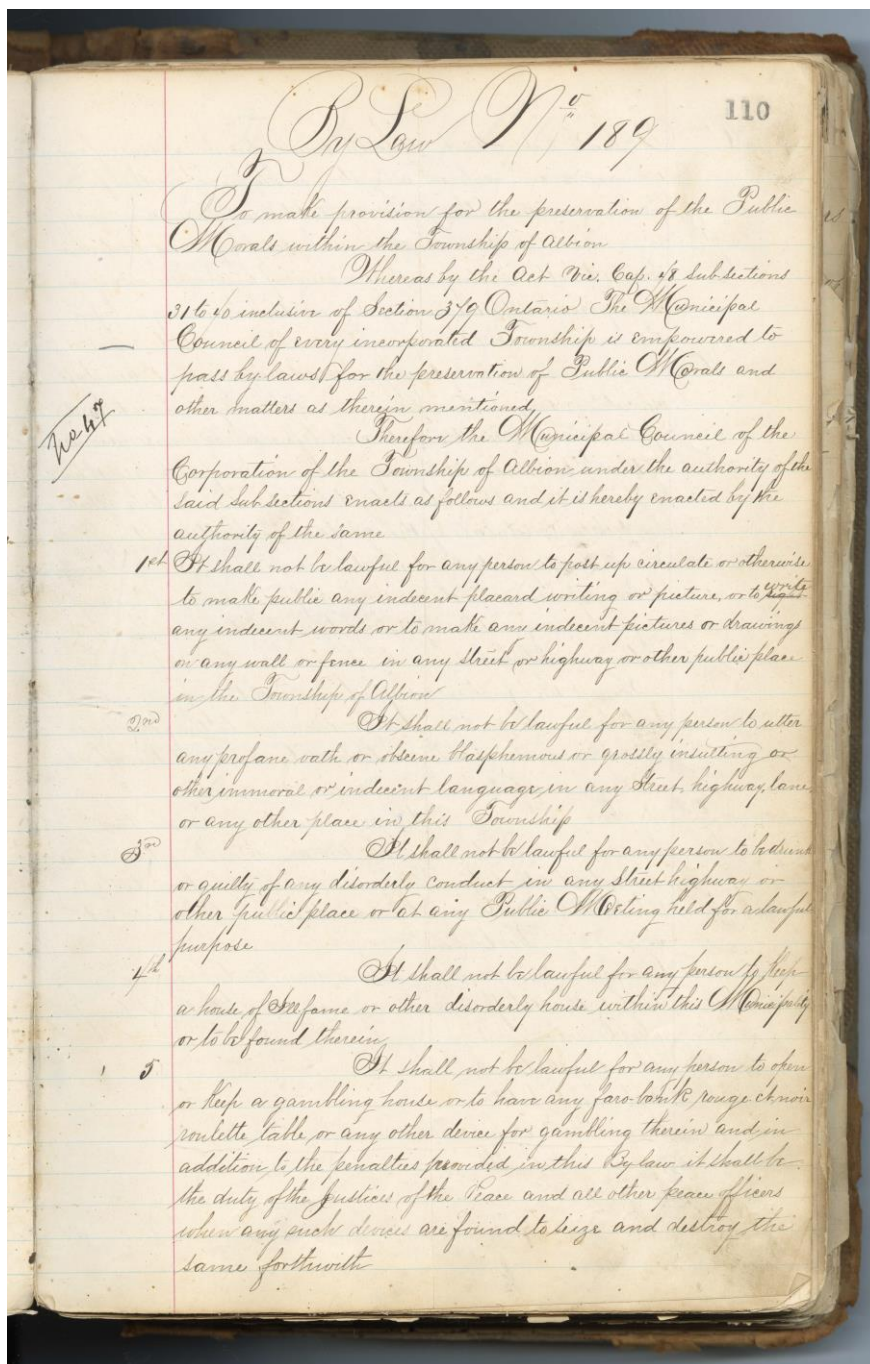 110
By Law No 189
To make provision for the preservation of the Public
Morals within the Township of Albion
Whereas by the Act Vic. Cap. 48 Sub sections
31 to 40 inclusive of Section 379 Ontario The Municipal
Council of every incorporated Township is empowered to
pass by-laws for the preservation of Public Morals and
other matters as therein mentioned
No 47
Therefore the Municipal Council of the
Corporation of the Township of Albion under the authority of the
said Sub sections enacts as follows and it is hereby enacted by the
authority of the same
1st It shall not be lawful for any person to post up circulate or otherwise
to make public any indecent placard writing or picture, or to write
any indecent words or to make any indecent pictures or drawings
on any wall or fence in any street or highway or other public place
in the Township of Albion
2nd It shall not be lawful for any person to utter
any profane oath or obscene blasphemous or grossly insulting or
other immoral or indecent language in any Street, highway, lane
or any other place in this Township
3rd It shall not be lawful for any person to be drunk
or guilty of any disorderly conduct in any Street highway or
other public place or at any Public Meeting held for a lawful
purpose
4th It shall not be lawful for any person to Keep
a house of Ill fame or other disorderly house within this Municipality
or to be found therein
5 It shall not be lawful for any person to open
or Keep a gambling house or to have any faro-bank rouge et noir
roulette table, or any other device for gambling therein and in
addition to the penalties provided in this By law it shall be
the duty of the Justices of the Peace and all other peace officers
when any such devices are found to seize and destroy the
same forthwith